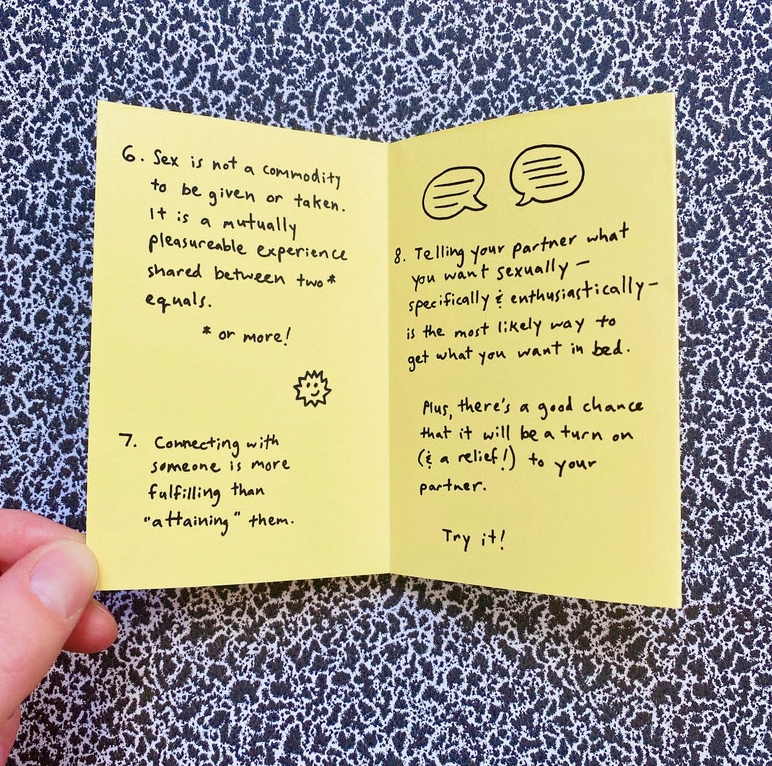 6. Sex is not a commodity
to be given or taken.
It is a mutually
pleasureable experience
shared between two*
equals.
* or more!
7. Connecting with
someone is more
fulfilling than
"attaining" them.
8. Telling your partner what
you want sexually –
specifically & enthusiastically –
is the most likely way to
get what you want in bed.
Plus, there's a good chance
that it will be a turn on
(& a relief!) to your
partner.
Try it!